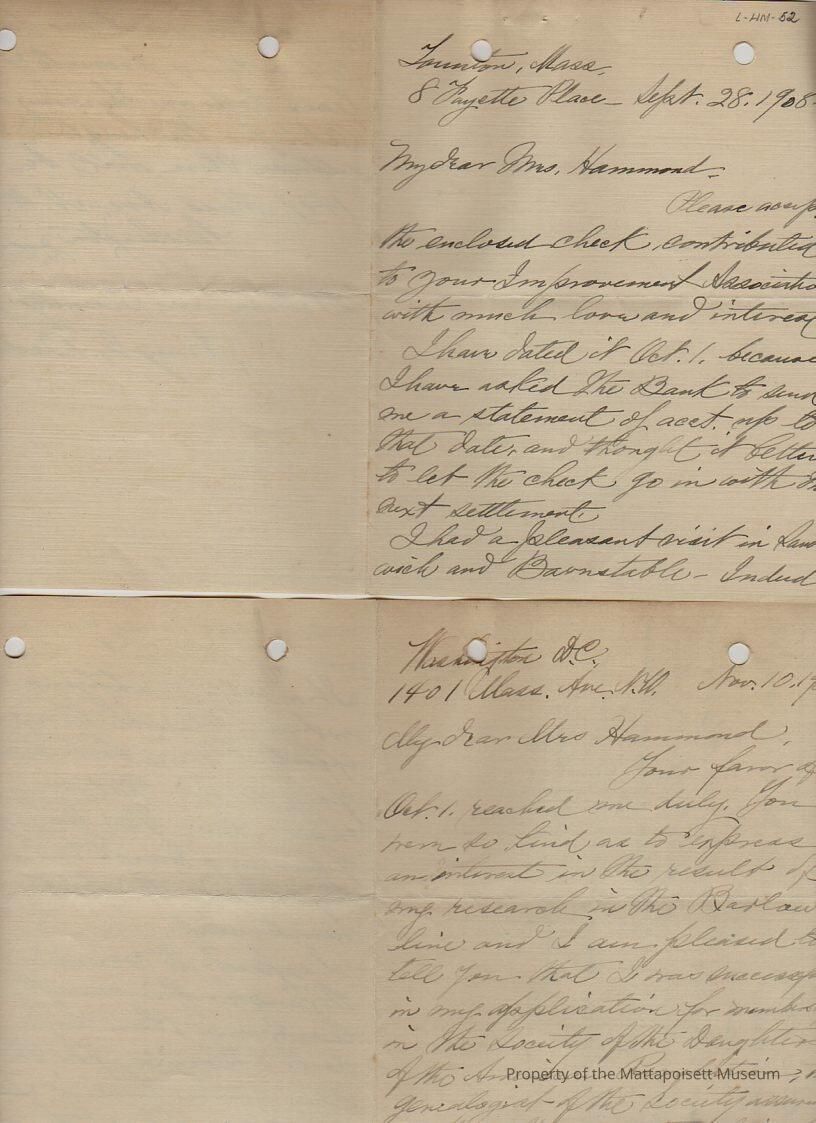 L-HM-52
Taunton, Mass.
8 Fayette Place - Sept. 28. 1908
My dear Mrs. Hammond -
Please accep
the enclosed check, contributed
to your Improvement Associatio
with much love and interest
I have dated it Oct. 1. because
I have asked the Bank to send
me a statement of acct. up to
that date, and thought it better
to let the check go in with
next settlement.
I had a pleasant visit in Sand
wich and Barnstable - Indeed
Washington D.C.
1401 Mass. Ave. N.W. Nov. 10. 19
My dear Mrs Hammond,
Your favor of
Oct. 1. reached me duly. You
were so kind as to express
an interest in the result of
my research in the Barlow
line and I am pleased to
tell you that I was success
in my application for member
in the Society of the Daughters
of the American Revolution,
genealogist of the Society
Property of the Mattapoisett Museum